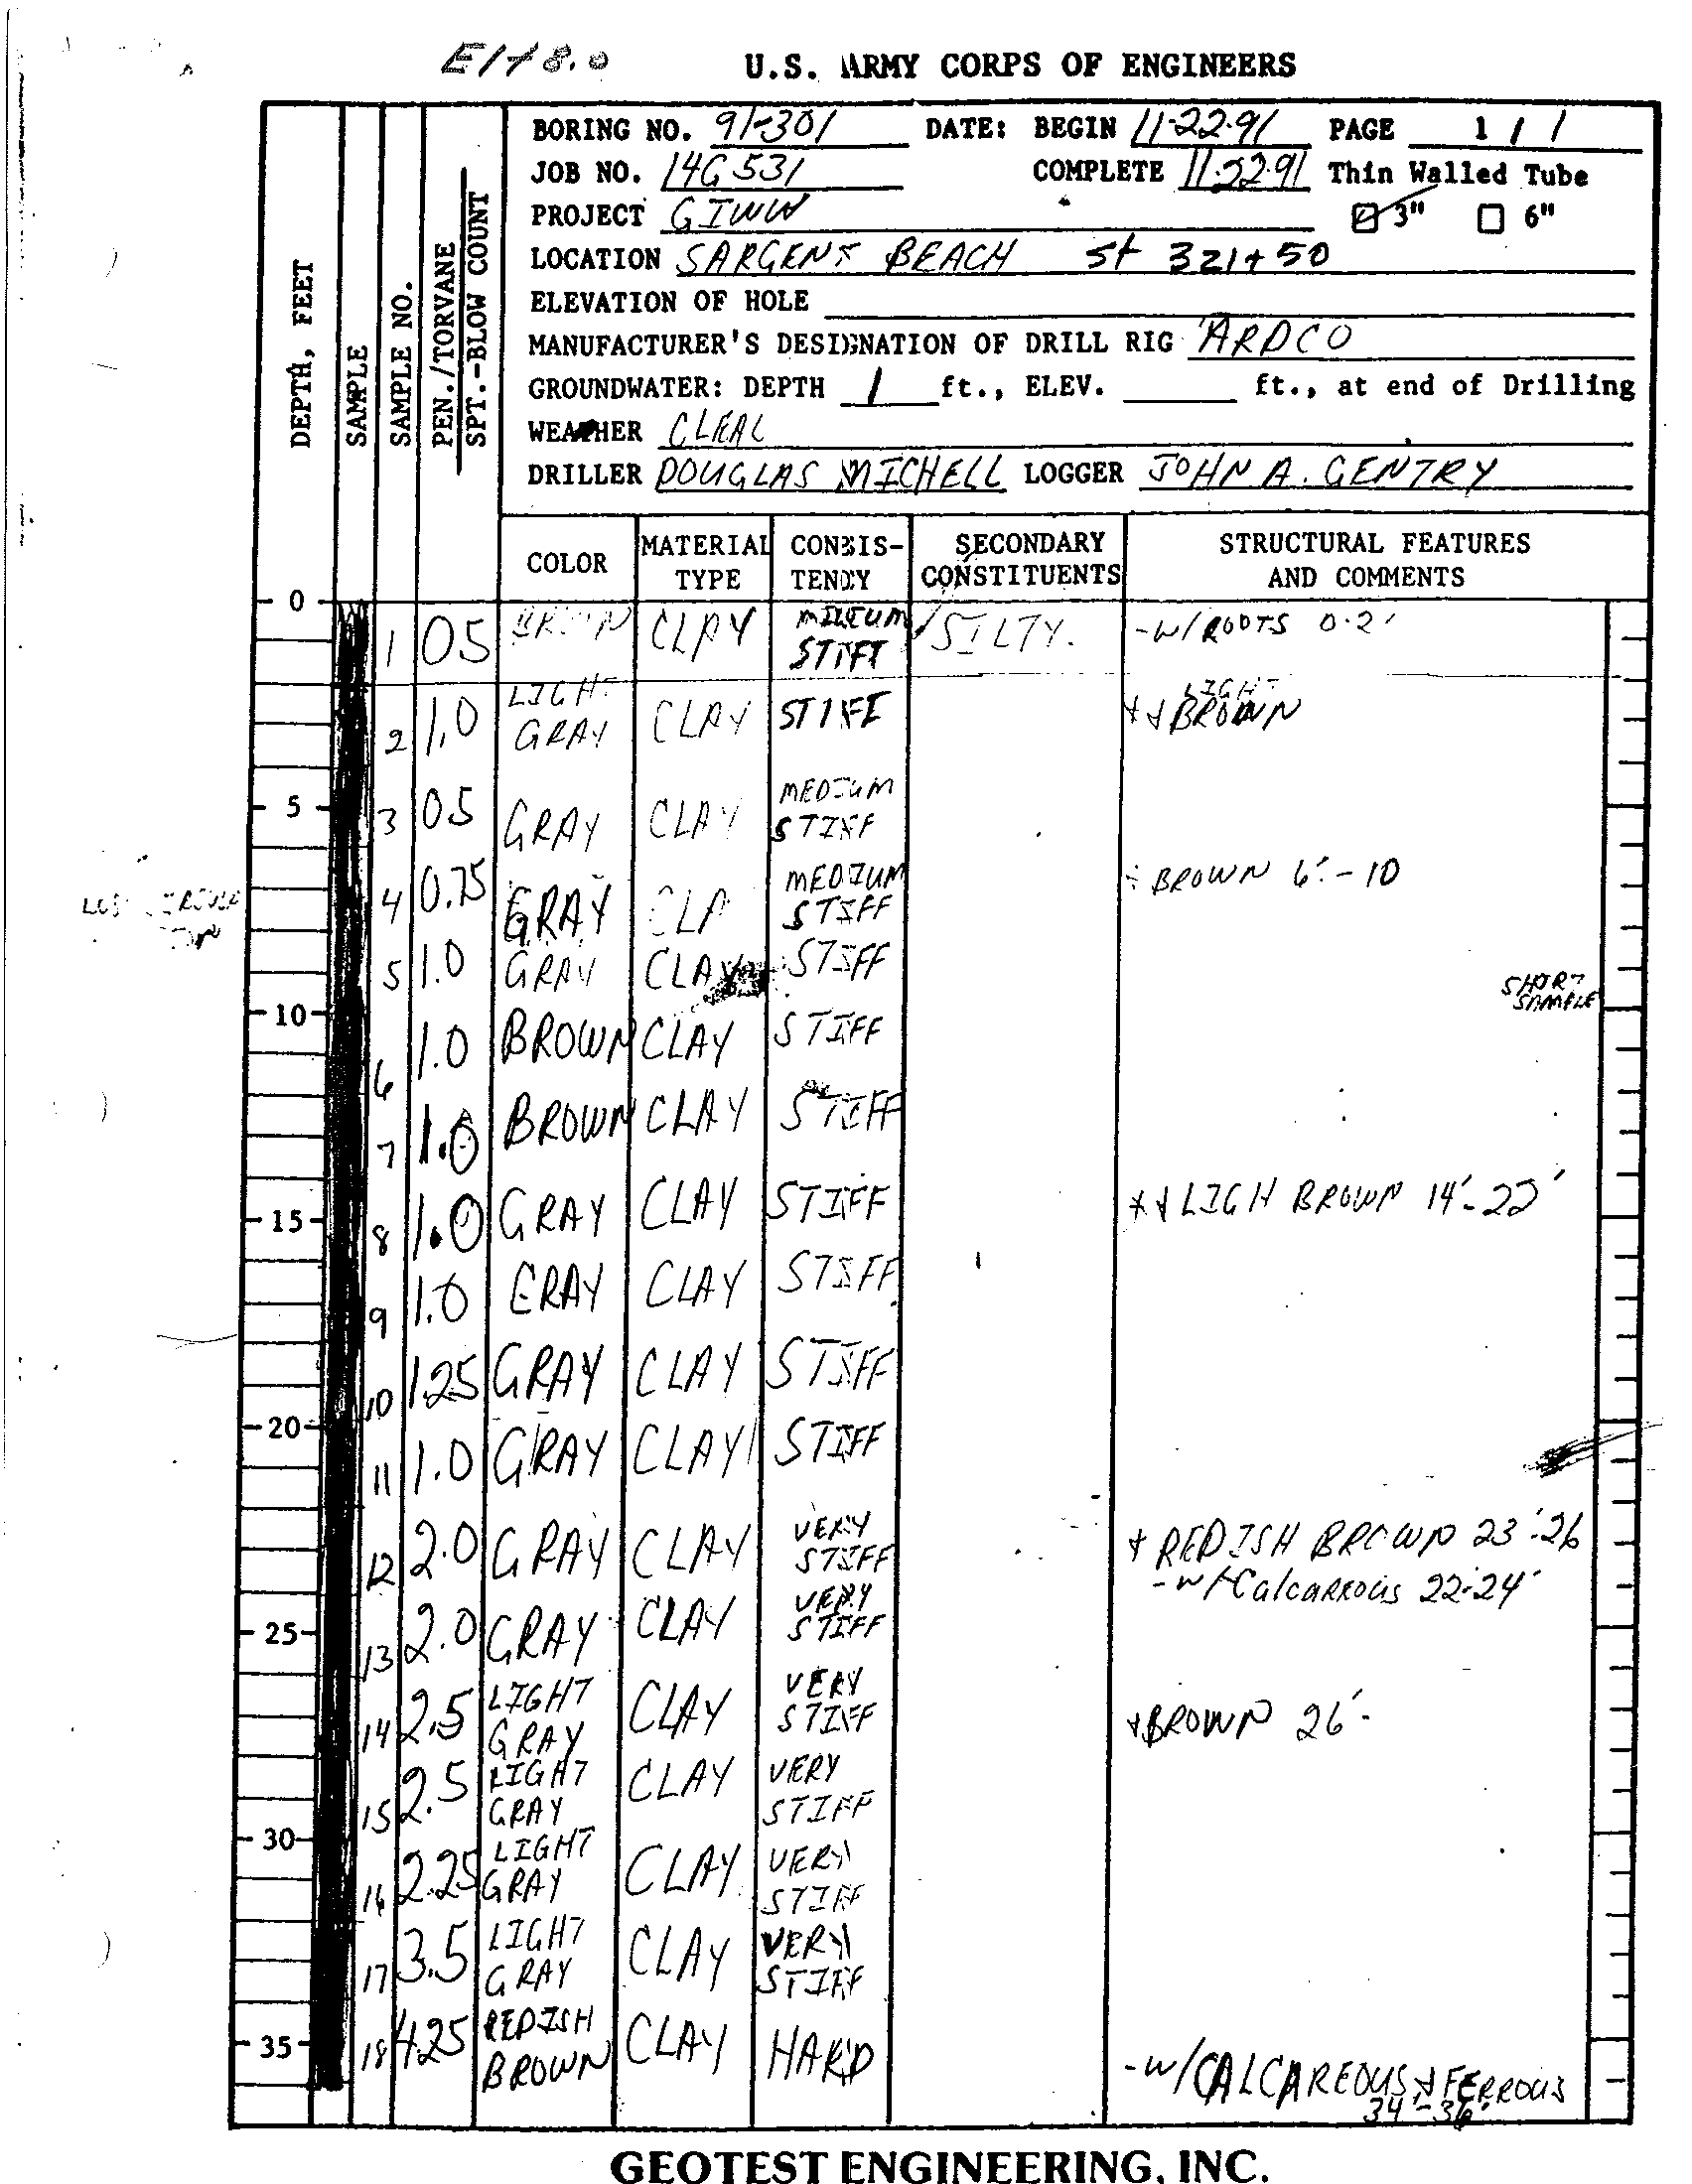 E1+8.0
U.S. ARMY CORPS OF ENGINEERS
BORING NO. 91-301 DATE: BEGIN 11-22-91 PAGE 1 / 1
JOB NO. 14G531 COMPLETE 11-22-91 Thin Walled Tube
PROJECT GIWW 3" 6"
LOCATION SARGENT BEACH St 321+50
ELEVATION OF HOLE
MANUFACTURER'S DESIGNATION OF DRILL RIG ARDCO
GROUNDWATER: DEPTH 1 ft., ELEV. ft., at end of Drilling
WEATHER CLEAR
DRILLER DOUGLAS MICHELL LOGGER JOHN A. GENTRY
DEPTH, FEET
SAMPLE
SAMPLE NO.
PEN./TORVANE
SPT.-BLOW COUNT
COLOR MATERIAL TYPE CONSISTENCY SECONDARY CONSTITUENTS STRUCTURAL FEATURES AND COMMENTS
0
1 0.5 BROWN CLAY MEDIUM STIFF SILTY. -W/ROOTS 0-2'
2 1.0 LIGHT GRAY CLAY STIFF LIGHT BROWN
5 3 0.5 GRAY CLAY MEDIUM STIFF
4 0.75 GRAY CLA MEDIUM STIFF BROWN 6'-10
5 1.0 GRAY CLAY STIFF SHORT SAMPLE
10
6 1.0 BROWN CLAY STIFF
7 1.0 BROWN CLAY STIFF
15 8 1.0 GRAY CLAY STIFF LIGH BROWN 14'-22'
9 1.0 GRAY CLAY STIFF
10 1.25 GRAY CLAY STIFF
20
11 1.0 GRAY CLAY STIFF
12 2.0 GRAY CLAY VERY STIFF + REDISH BROWN 23'-26
-w/Calcareous 22-24'
25 13 2.0 GRAY CLAY VERY STIFF
14 2.5 LIGHT GRAY CLAY VERY STIFF +BROWN 26'-
15 2.5 LIGHT GRAY CLAY VERY STIFF
30
16 2.25 LIGHT GRAY CLAY VERY STIFF
17 3.5 LIGHT GRAY CLAY VERY STIFF
35 18 4.25 REDISH BROWN CLAY HARD -W/CALCAREOUS & FERROUS
34'-36'
GEOTEST ENGINEERING, INC.